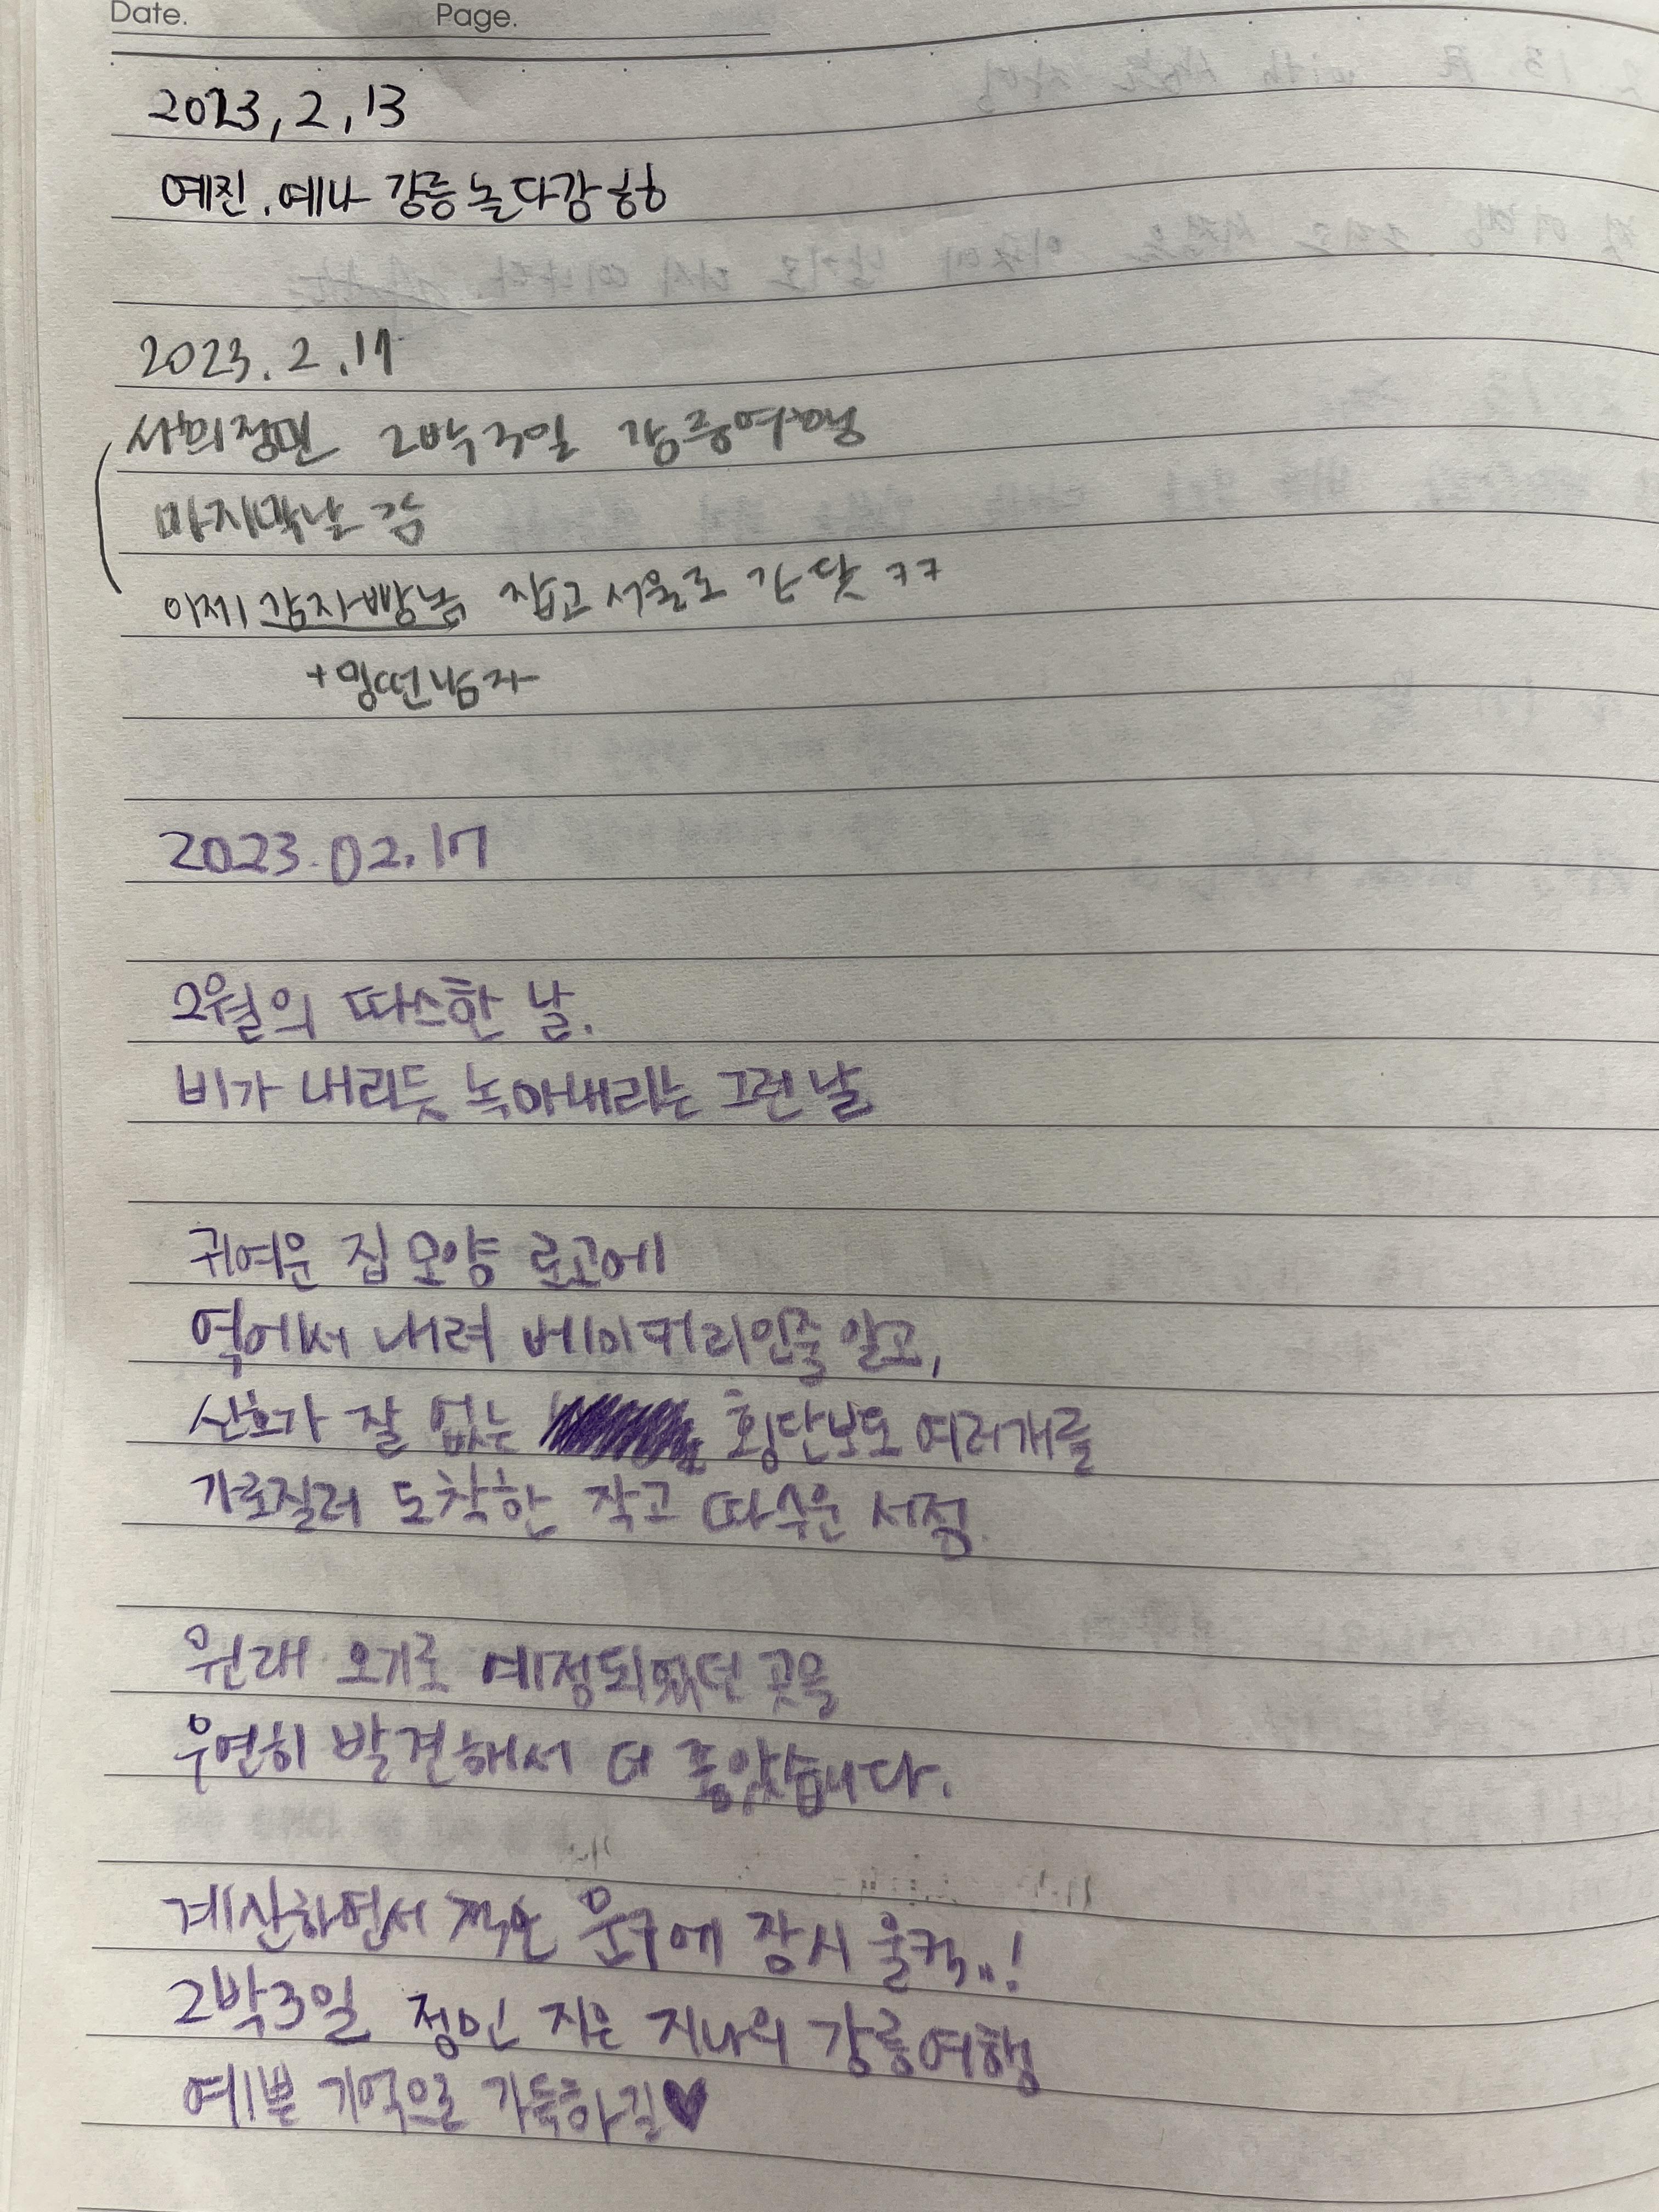 Date. Page.
2023, 2, 13
예진. 예나 강릉 놀다감 ㅎㅎ
2023. 2. 17
2박3일 강릉여행
마지막날 감
이제 감자빵 잡고 서울로 간닷 ㅋㅋ
2023. 02. 17
2월의 따스한 날.
비가 내리듯 녹아내리는 그런 날
귀여운 집 모양 로고에
역에서 내려 베이커리인줄 알고,
신호가 잘 없는 횡단보도 여러개를
가로질러 도착한 작고 따수운 서점.
원래 오기로 예정되었던 곳을
우연히 발견해서 더 좋았습니다.
계산하면서 적은 문구에 잠시 울컥..!
2박3일 정민 지은 지나의 강릉여행
예쁜 기억으로 가득하길♥